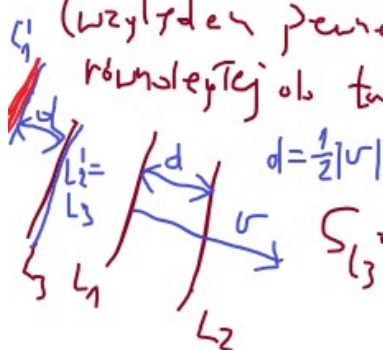 (względem pewne
L₁'
równoległej do ta
d
L₂' =
L₃
d
d = ½|v|
v
S_L₃
L₃ L₁
L₂